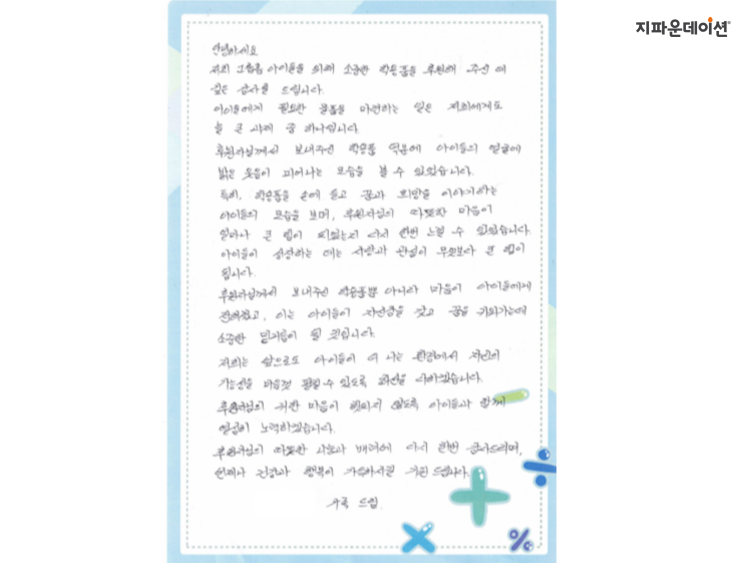 지파운데이션
안녕하세요
저희 그룹홈 아이들을 위해 소중한 학용품을 후원해 주신 데
깊은 감사를 드립니다.
아이들에게 필요한 물품을 마련하는 일은 저희에게도
늘 큰 과제 중 하나입니다.
후원자님께서 보내주신 학용품 덕분에 아이들의 얼굴에
밝은 웃음이 피어나는 모습을 볼 수 있었습니다.
특히, 학용품을 손에 들고 꿈과 희망을 이야기하는
아이들의 모습을 보며, 후원자님의 따뜻한 마음이
얼마나 큰 힘이 되었는지 다시 한번 느낄 수 있었습니다.
아이들이 성장하는 데는 사랑과 관심이 무엇보다 큰 힘이
됩니다.
후원자님께서 보내주신 학용품뿐 아니라 마음이 아이들에게
전해졌고, 이는 아이들이 자신감을 갖고 꿈을 키워가는데
소중한 밑거름이 될 것입니다.
저희는 앞으로도 아이들이 더 나은 환경에서 자신의
가능성을 마음껏 펼칠 수 있도록 최선을 다하겠습니다.
후원자님의 귀한 마음이 헛되지 않도록 아이들과 함께
열심히 노력하겠습니다.
후원자님의 따뜻한 사랑과 배려에 다시 한번 감사드리며,
언제나 건강과 행복이 가득하시길 기원드립니다.
드림